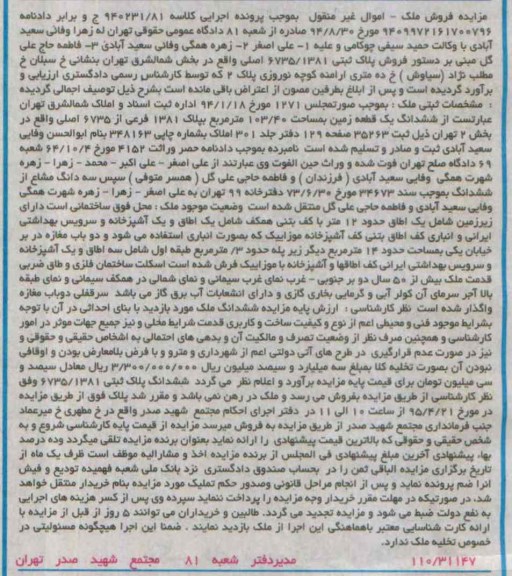 مزایده فروش ملک - اموال غیر منقول بموجب پرونده اجرایی کلاسه ۹۴۰۲۳۱/۸۱ ج و برابر دادنامه
۹۴۰۹۹۷۲۱۶۱۷۰۰۷۹۶ مورخ ۹۴/۸/۳۰ صادره از شعبه ۸۱ دادگاه عمومی حقوقی تهران له زهرا وفائی سعید
آبادی با وکالت حمید سیفی چوکامی و علیه ۱- علی اصغر ۲- زهره همگی وفائی سعید آبادی ۳- فاطمه حاج علی
گل مبنی بر دستور فروش پلاک ثبتی ۶۷۳۵/۱۳۸۱ اصلی واقع در بخش شمالشرق تهران بنشانی خ سبلان خ
مطلب نژاد (سیاوش) خ ده متری ارامنه کوچه نوروزی پلاک ۲ که توسط کارشناس رسمی دادگستری ارزیابی و
برآورد گردیده است و پس از ابلاغ بطرفین مصون از اعتراض باقی مانده است بشرح ذیل توصیف اجمالی گردیده
: مشخصات ثبتی ملک : بموجب صورتمجلس ۱۲۷۱ مورخ ۹۴/۱۱/۱۸ اداره ثبت اسناد و املاک شمالشرق تهران
عبارتست از ششدانگ یک قطعه زمین بمساحت ۱۰۳/۴۰ مترمربع بپلاک ۱۳۸۱ فرعی از ۶۷۳۵ اصلی واقع در
بخش ۲ تهران ذیل ثبت ۳۵۲۶۳ صفحه ۱۲۹ دفتر جلد ۳۰۱ املاک بشماره چاپی ۳۴۸۱۶۳ بنام ابوالحسن وفایی
سعید آبادی ثبت و صادر و تسلیم شده است نامبرده بموجب دادنامه حصر وراثت ۴۱۵۲ مورخ ۶۴/۱۰/۴ شعبه
۶۹ دادگاه صلح تهران فوت شده و وراث حین الفوت وی عبارتند از علی اصغر - علی اکبر - محمد - زهرا - زهره
شهرت همگی وفایی سعید آبادی ( فرزندان ) و فاطمه حاجی علی گل ( همسر متوفی ) سپس سه دانگ مشاع از
ششدانگ بموجب سند ۳۴۶۷۳ مورخ ۷۳/۶/۳۰ دفترخانه ۹۹ تهران به علی اصغر - زهرا - زهره شهرت همگی
وفایی سعید آبادی و فاطمه حاجی علی گل منتقل شده است وضعیت موجود ملک : محل فوق ساختمانی است دارای
زیرزمین شامل یک اطاق حدود ۱۲ متر با کف بتنی همکف شامل یک اطاق و یک آشپزخانه و سرویس بهداشتی
ایرانی و انباری کف اطاق بتنی کف آشپزخانه موزاییک که بصورت انباری استفاده می شود و دو باب مغازه در بر
خیابان یکی بمساحت حدود ۱۴ مترمربع دیگر زیر پله حدود ۳/ مترمربع طبقه اول شامل سه اطاق و یک آشپزخانه
و سرویس بهداشتی ایرانی کف اطاقها و آشپزخانه با موزاییک فرش شده است اسکلت ساختمان فلزی و طاق ضربی
قدمت ملک بیش از ۵۰ سال دو بر جنوبی - غرب نمای غرب سیمانی و نمای شمالی در همکف سیمانی و نمای طبقه
بالا آجر سرمای آن کولر آبی و گرمایی بخاری گازی و دارای انشعابات آب برق گاز می باشد سرقفلی دوباب مغازه
واگذار شده است نظر کارشناسی : ارزش پایه مزایده ششدانگ ملک مورد بازدید با بنای احداثی در آن با توجه
بشرایط موجود فنی و محیطی اعم از نوع و کیفیت ساخت و کاربری قدمت شرایط محلی و نیز جمیع جهات موثر در امور
کارشناسی و همچنین صرف نظر از وضعیت تصرف و مالکیت آن و بدهی های احتمالی به اشخاص حقیقی و حقوقی و
نیز در صورت عدم قرارگیری در طرح های آتی دولتی اعم از شهرداری و مترو و با فرض بلامعارض بودن و اوقافی
نبودن آن بصورت تخلیه کلا بمبلغ سه میلیارد و سیصد میلیون ریال ۳/۳۰۰/۰۰۰/۰۰۰ ریال معادل سیصد و
سی میلیون تومان برای قیمت پایه مزایده برآورد و اعلام نظر می گردد ششدانگ پلاک ثبتی ۶۷۳۵/۱۳۸۱ وفق
نظر کارشناسی از طریق مزایده بفروش می رسد و ملک در رهن نمی باشد و مقرر شد پلاک فوق از طریق مزایده
در مورخ ۹۵/۴/۲۱ از ساعت ۱۰ الی ۱۱ در دفتر اجرای احکام مجتمع شهید صدر واقع در خ مطهری خ میرعماد
جنب فرمانداری مجتمع شهید صدر از طریق مزایده به فروش میرسد مزایده از قیمت پایه کارشناسی شروع و به
شخص حقیقی و حقوقی که بالاترین قیمت پیشنهادی را ارائه نماید بعنوان برنده مزایده تلقی میگردد وده درصد
بهاء پیشنهادی آخرین مبلغ پیشنهادی فی المجلس از برنده مزایده اخذ و مشارالیه موظف است ظرف یک ماه از
تاریخ برگزاری مزایده الباقی ثمن را در بحساب صندوق دادگستری نزد بانک ملی شعبه فهمیده تودیع و فیش
انرا ضم پرونده نماید و پس از انجام مراحل قانونی وصدور حکم تملیک مورد مزایده بنام خریدار منتقل خواهد
شد، در صورتیکه در مهلت مقرر خریدار وجه مزایده را پرداخت ننماید سپرده وی پس از کسر هزینه های اجرایی
به نفع دولت ضبط می شود و مزایده تجدید می گردد. طالبین و خریداران می توانند ۵ روز از قبل از مزایده با
ارائه کارت شناسایی معتبر باهماهنگی این اجرا از ملک بازدید نمایند . ضمنا این اجرا هیچگونه مسئولیتی در
خصوص تخلیه ملک ندارد.
۱۱۰/۳۱۱۴۷ مدیردفتر شعبه ۸۱ مجتمع شهید صدر تهران